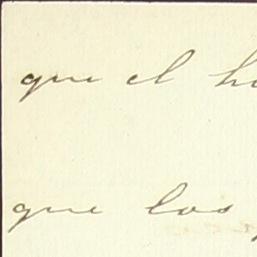 que el
que los